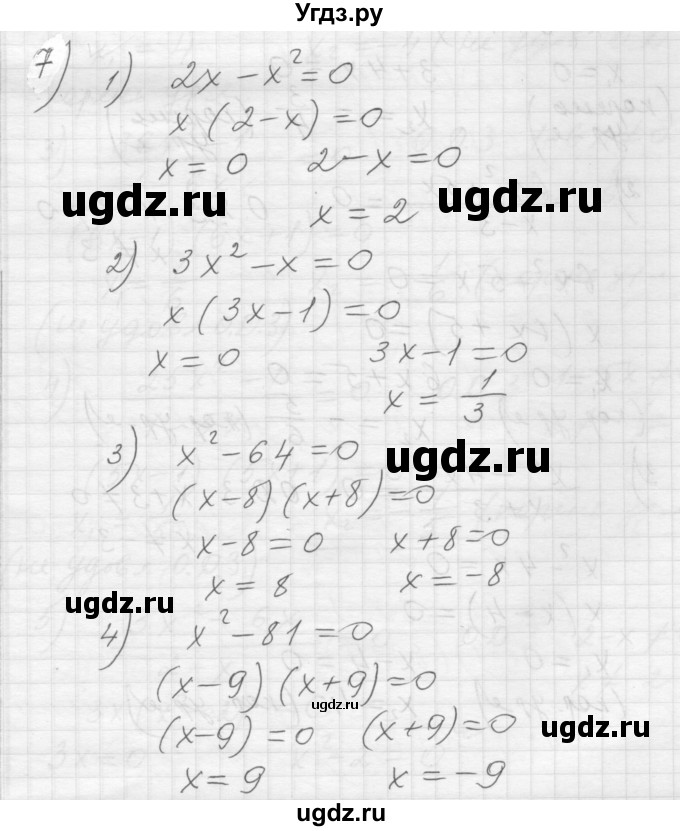 Угдз.ру
7) 1) 2x - x² = 0
x (2 - x) = 0
x = 0 2 - x = 0
ugdz.ru ugdz.ru
x = 2
2) 3x² - x = 0
x (3x - 1) = 0
x = 0 3x - 1 = 0
x = 1/3
3) x² - 64 = 0
ugdz.ru
(x - 8) (x + 8) = 0
x - 8 = 0 x + 8 = 0
x = 8 x = -8
ugdz.ru
4) x² - 81 = 0
(x - 9) (x + 9) = 0
ugdz.ru
(x - 9) = 0 (x + 9) = 0
ugdz.ru
x = 9 x = -9
ugdz.ru